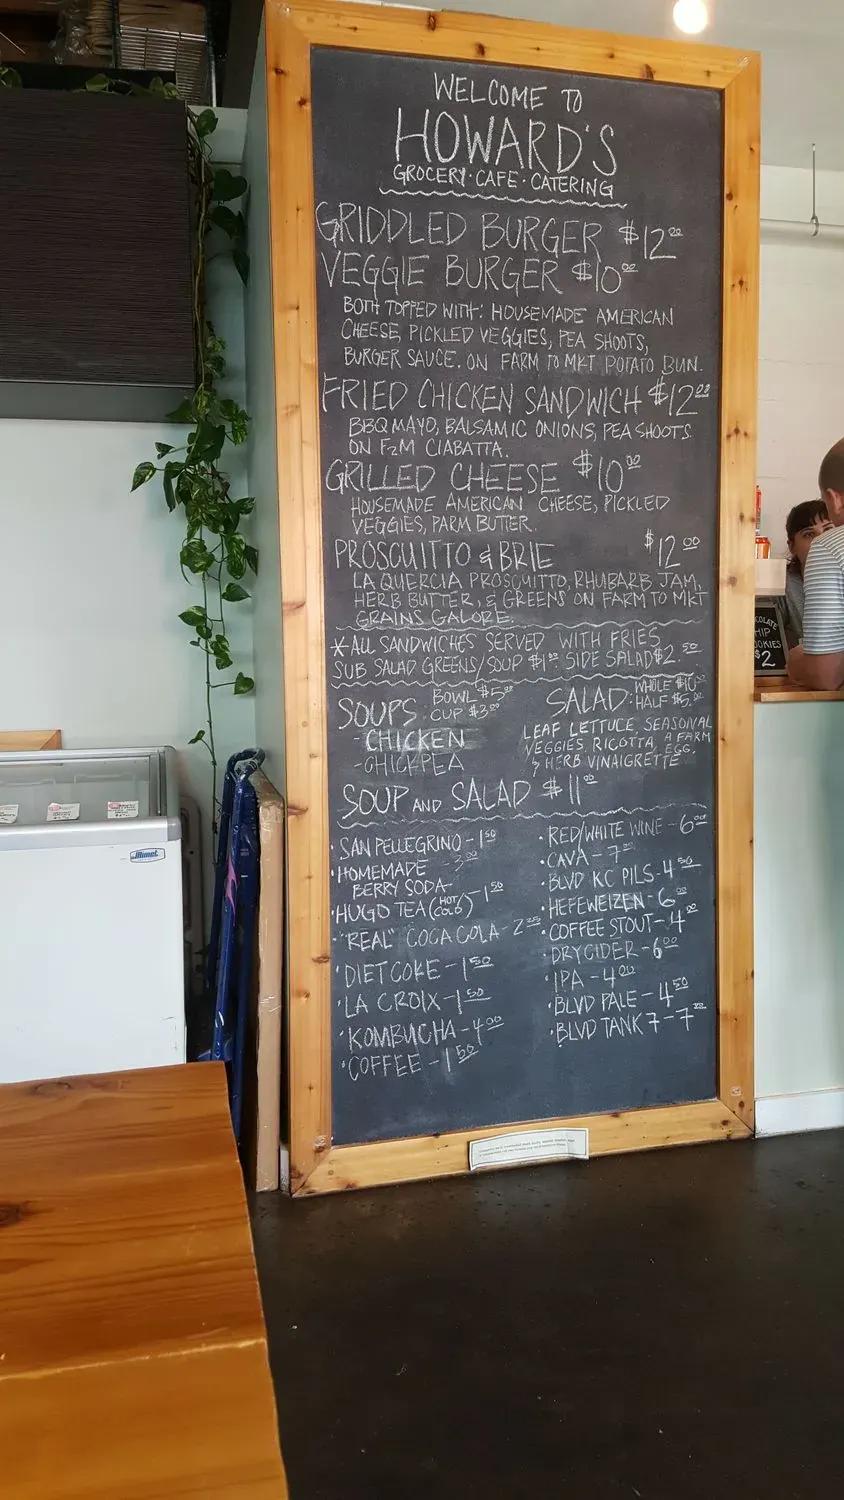 WELCOME TO
HOWARD'S
GROCERY · CAFE · CATERING
GRIDDLED BURGER $12.00
VEGGIE BURGER $10.00
BOTH TOPPED WITH: HOUSEMADE AMERICAN
CHEESE, PICKLED VEGGIES, PEA SHOOTS,
BURGER SAUCE. ON FARM TO MKT POTATO BUN.
FRIED CHICKEN SANDWICH $12.00
BBQ MAYO, BALSAMIC ONIONS, PEA SHOOTS
ON F2M CIABATTA.
GRILLED CHEESE $10.00
HOUSEMADE AMERICAN CHEESE, PICKLED
VEGGIES, PARM BUTTER.
PROSCUITTO & BRIE $12.00
LA QUERCIA PROSCUITTO, RHUBARB JAM,
HERB BUTTER, & GREENS ON FARM TO MKT
GRAINS GALORE.
*ALL SANDWICHES SERVED WITH FRIES
SUB SALAD GREENS/SOUP $1.00 SIDE SALAD $2.50
SOUPS: BOWL $5.00
CUP $3.00
- CHICKEN
- CHICKPEA
SALAD: WHOLE $10.00
HALF $5.00
LEAF LETTUCE, SEASONAL
VEGGIES, RICOTTA, A FARM EGG,
& HERB VINAIGRETTE
SOUP AND SALAD $11.00
· SAN PELLEGRINO - 1.50
· HOMEMADE BERRY SODA - 3.00
· HUGO TEA (HOT COLD) - 1.50
· "REAL" COCA COLA - 2.25
· DIET COKE - 1.50
· LA CROIX - 1.50
· KOMBUCHA - 4.00
· COFFEE - 1.50
· RED/WHITE WINE - 6.00
· CAVA - 7.00
· BLVD KC PILS - 4.50
· HEFEWEIZEN - 6.00
· COFFEE STOUT - 4.00
· DRY CIDER - 6.00
· IPA - 4.00
· BLVD PALE - 4.50
· BLVD TANK 7 - 7.00
$2